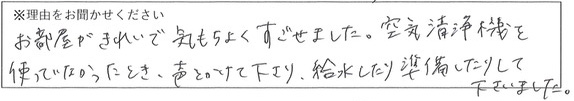 ※理由をお聞かせください
お部屋がきれいで気もちよくすごせました。空気清浄機を
使ってなかったとき、声をかけて下さり、給水したり準備したりして
下さいました。